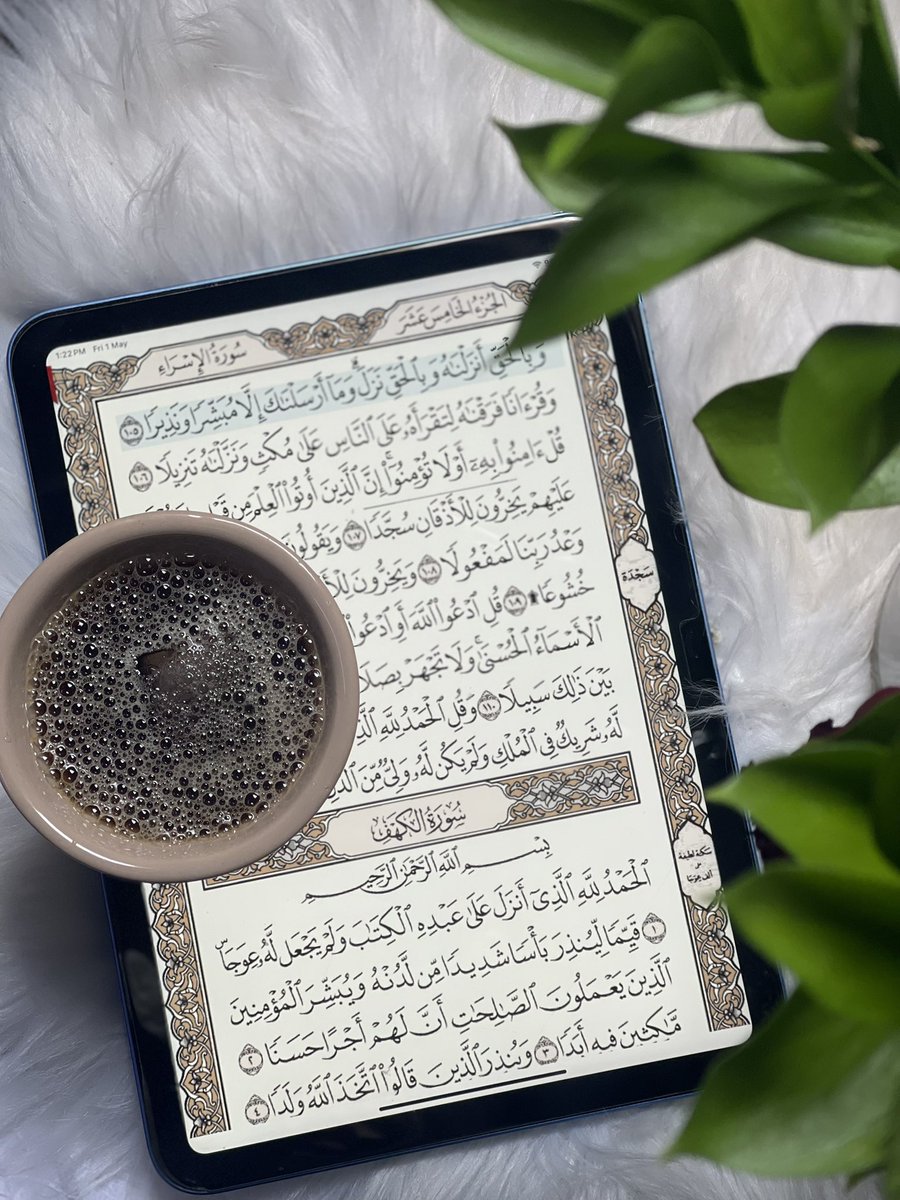 1:22 PM Fri 1 May
سُورَةُ الإِسْرَاءِ
الجُزْءُ الخَامِسَ عَشَرَ
وَبِالْحَقِّ أَنزَلْنَٰهُ وَبِالْحَقِّ نَزَلَ ۗ وَمَا أَرْسَلْنَٰكَ إِلَّا مُبَشِّرًا وَنَذِيرًا ١٠٥
وَقُرْءَانًا فَرَقْنَٰهُ لِتَقْرَأَهُۥ عَلَى النَّاسِ عَلَىٰ مُكْثٍ وَنَزَّلْنَٰهُ تَنزِيلًا ١٠٦
قُلْ ءَامِنُوا۟ بِهِۦٓ أَوْ لَا تُؤْمِنُوٓا۟ ۚ إِنَّ الَّذِينَ أُوتُوا۟ الْعِلْمَ مِن
عَلَيْهِمْ يَخِرُّونَ لِلْأَذْقَانِ سُجَّدًا ١٠٧ وَيَقُولُونَ
وَعْدُ رَبِّنَا لَمَفْعُولًا ١٠٨ وَيَخِرُّونَ
خُشُوعًا ۩ ١٠٩ قُلِ ادْعُوا۟ اللَّهَ أَوِ ادْعُوا۟
الْأَسْمَآءُ الْحُسْنَىٰ ۚ وَلَا تَجْهَرْ
بَيْنَ ذَٰلِكَ سَبِيلًا ١١٠ وَقُلِ الْحَمْدُ لِلَّهِ
لَّهُۥ شَرِيكٌ فِى الْمُلْكِ وَلَمْ يَكُن لَّهُۥ وَلِىٌّ مِّنَ
سَجْدَة
سُورَةُ الكَهْفِ
بِسْمِ اللَّهِ الرَّحْمَٰنِ الرَّحِيمِ
الْحَمْدُ لِلَّهِ الَّذِىٓ أَنزَلَ عَلَىٰ عَبْدِهِ الْكِتَٰبَ وَلَمْ يَجْعَل لَّهُۥ عِوَجَا ۜ
١ قَيِّمًا لِّيُنذِرَ بَأْسًا شَدِيدًا مِّن لَّدُنْهُ وَيُبَشِّرَ الْمُؤْمِنِينَ
الَّذِينَ يَعْمَلُونَ الصَّٰلِحَٰتِ أَنَّ لَهُمْ أَجْرًا حَسَنًا ٢
مَّٰكِثِينَ فِيهِ أَبَدًا ٣ وَيُنذِرَ الَّذِينَ قَالُوا۟ اتَّخَذَ اللَّهُ وَلَدًا ٤
سكتة لطيفة
على
ألف عوجا